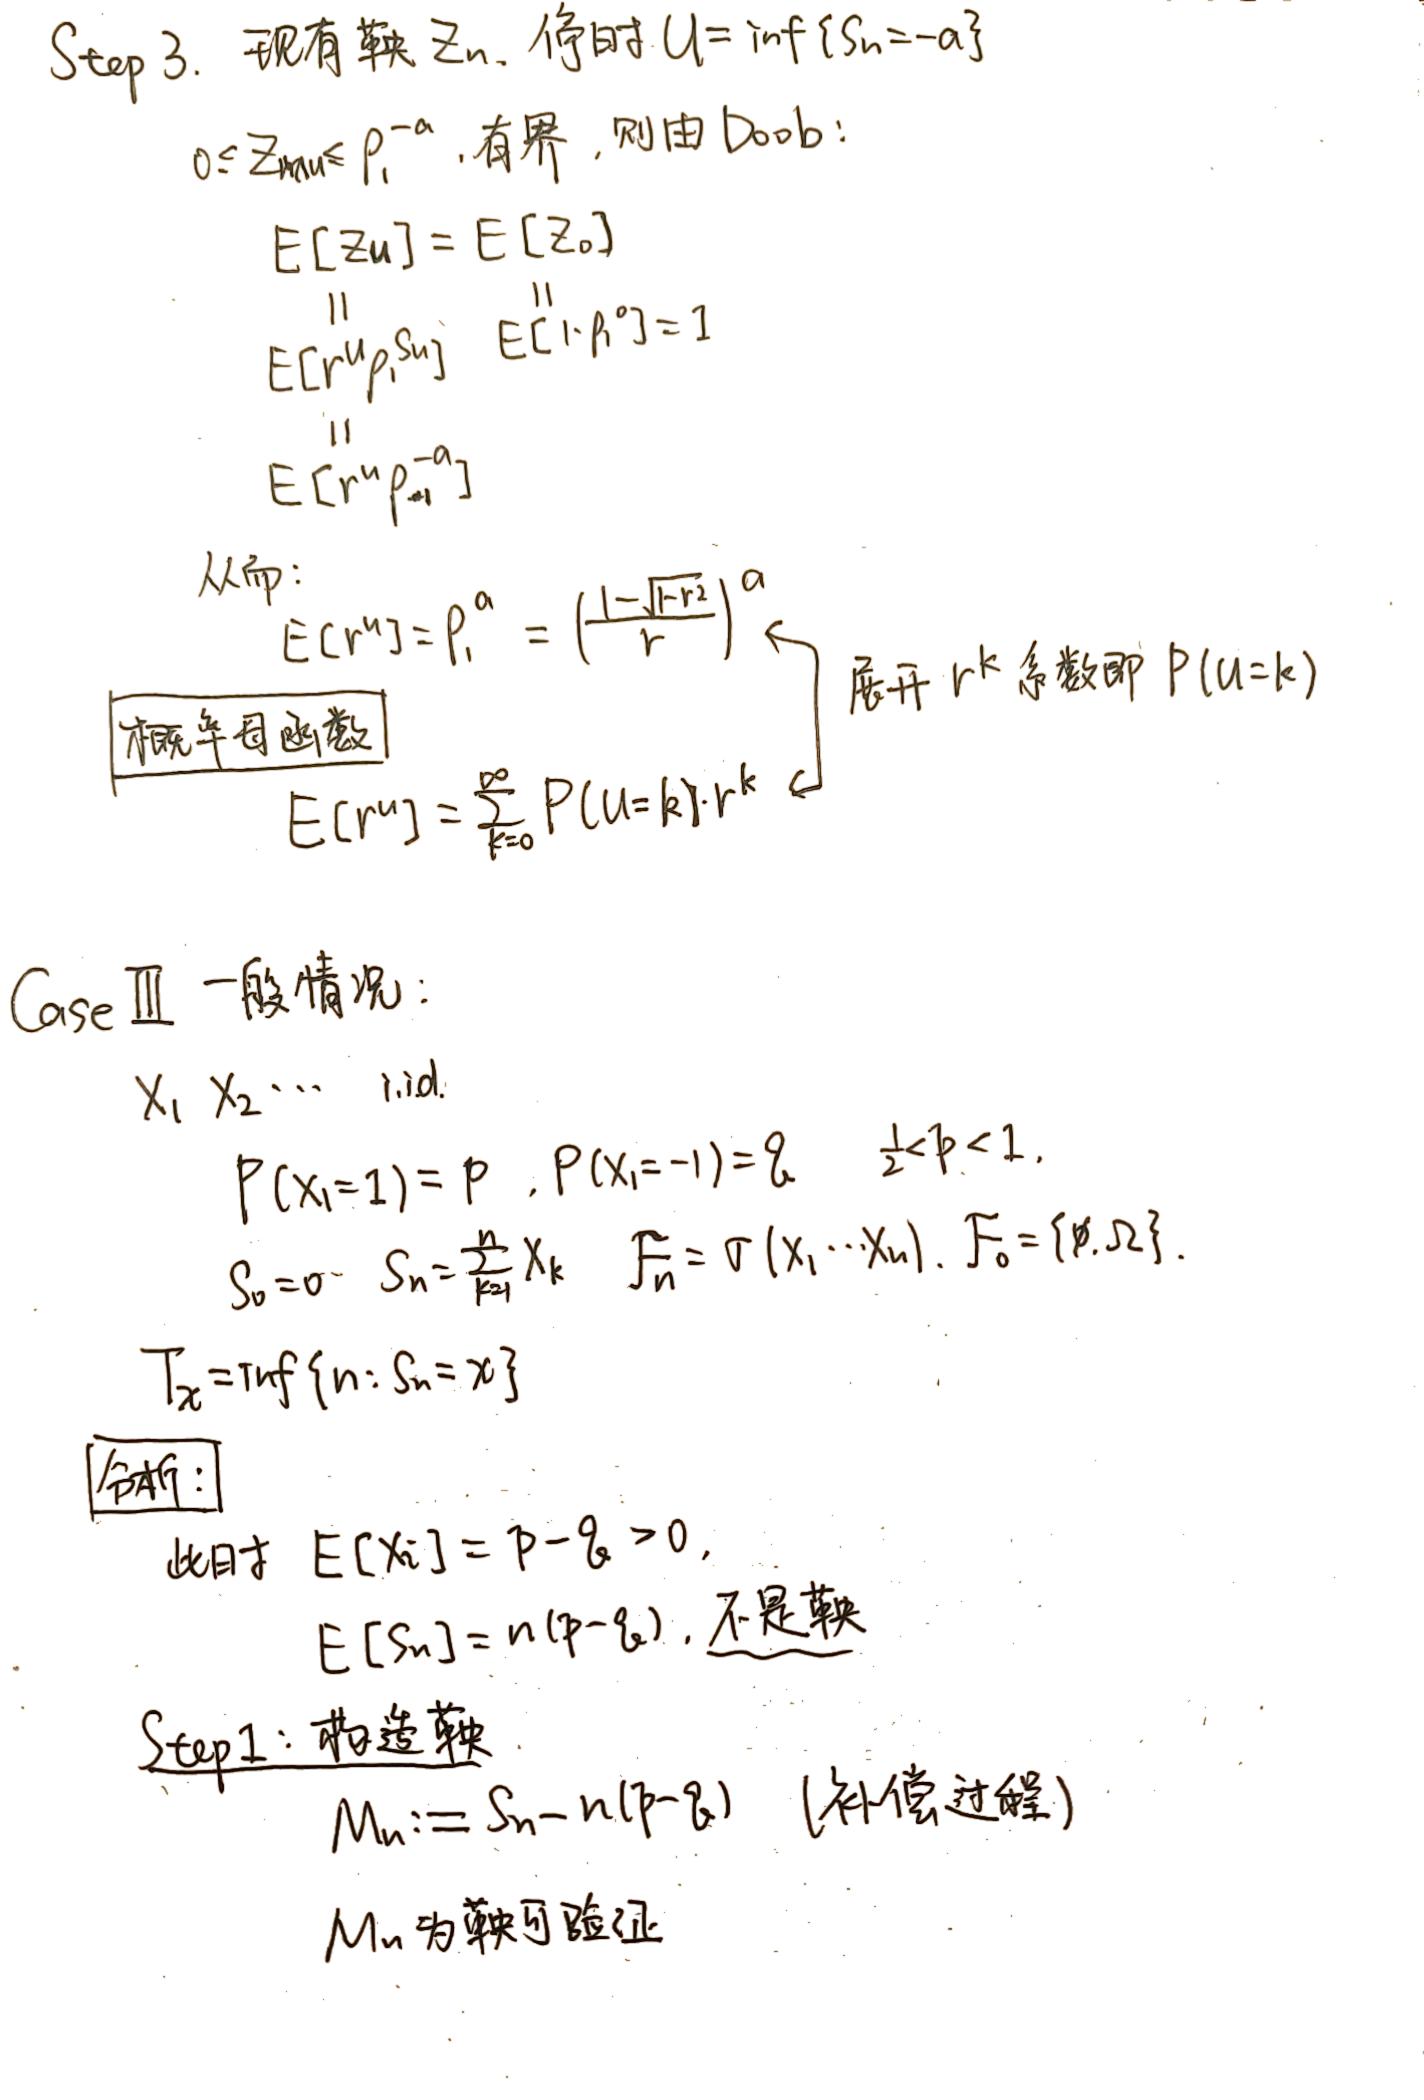 Step 3. 现有鞅 Zn. 停时 U = inf{Sn=-a}
0≤Zn∧u≤ρ₁^{-a}. 有界, 则由 Doob:
E[Zu] = E[Z₀]
|| ||
E[r^u ρ₁^{Su}] E[1·ρ₁^0]=1
||
E[r^u ρ₁^{-a}]
从而:
E[r^u] = ρ₁^a = ((1-√(1-r²))/r)^a
展开 r^k 系数即 P(U=k)
概率母函数
E[r^u] = ∑_{k=0}^{∞} P(U=k)·r^k
Case Ⅲ 一般情况:
X₁ X₂ ⋯ i.i.d.
P(X₁=1)=p, P(X₁=-1)=q ½<p<1.
S₀=0 Sn=∑_{k=1}^{n} Xk Fn=σ(X₁⋯Xn). F₀={∅,Ω}.
Tx=inf{n: Sn=x}
分析:
此时 E[Xi] = p-q >0,
E[Sn] = n(p-q). 不是鞅
Step1: 构造鞅
Mn := Sn-n(p-q) (补偿过程)
Mn 为鞅可验证